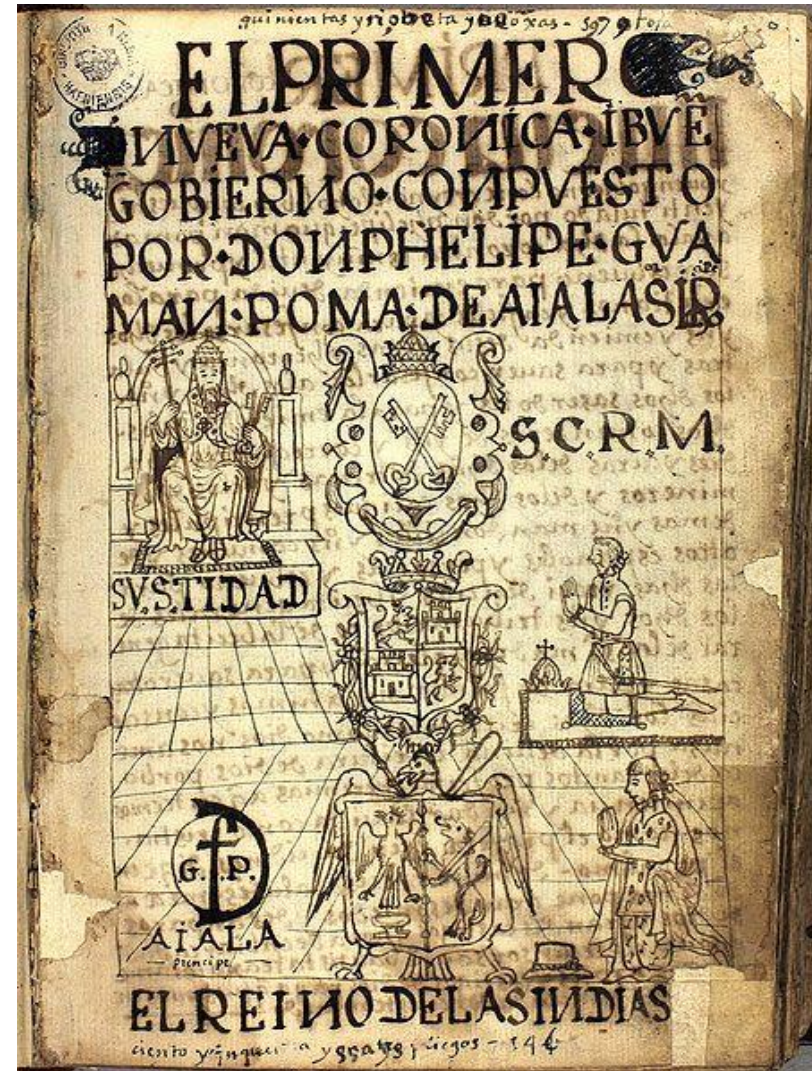 quinientas y nobenta y ojas - 597 - foja
EL PRIMER
NVEVA·CORONICA·I BVĒ
GOBIERNO·CONPVESTO
POR·DON PHELIPE·GVA
MAN·POMA·DE AIALA S͞IR
S.C.R.M.
SV.S.TIDAD
G. P.
AIALA
principe
EL REINO DE LAS INDIAS
ciento y pliegos - 146